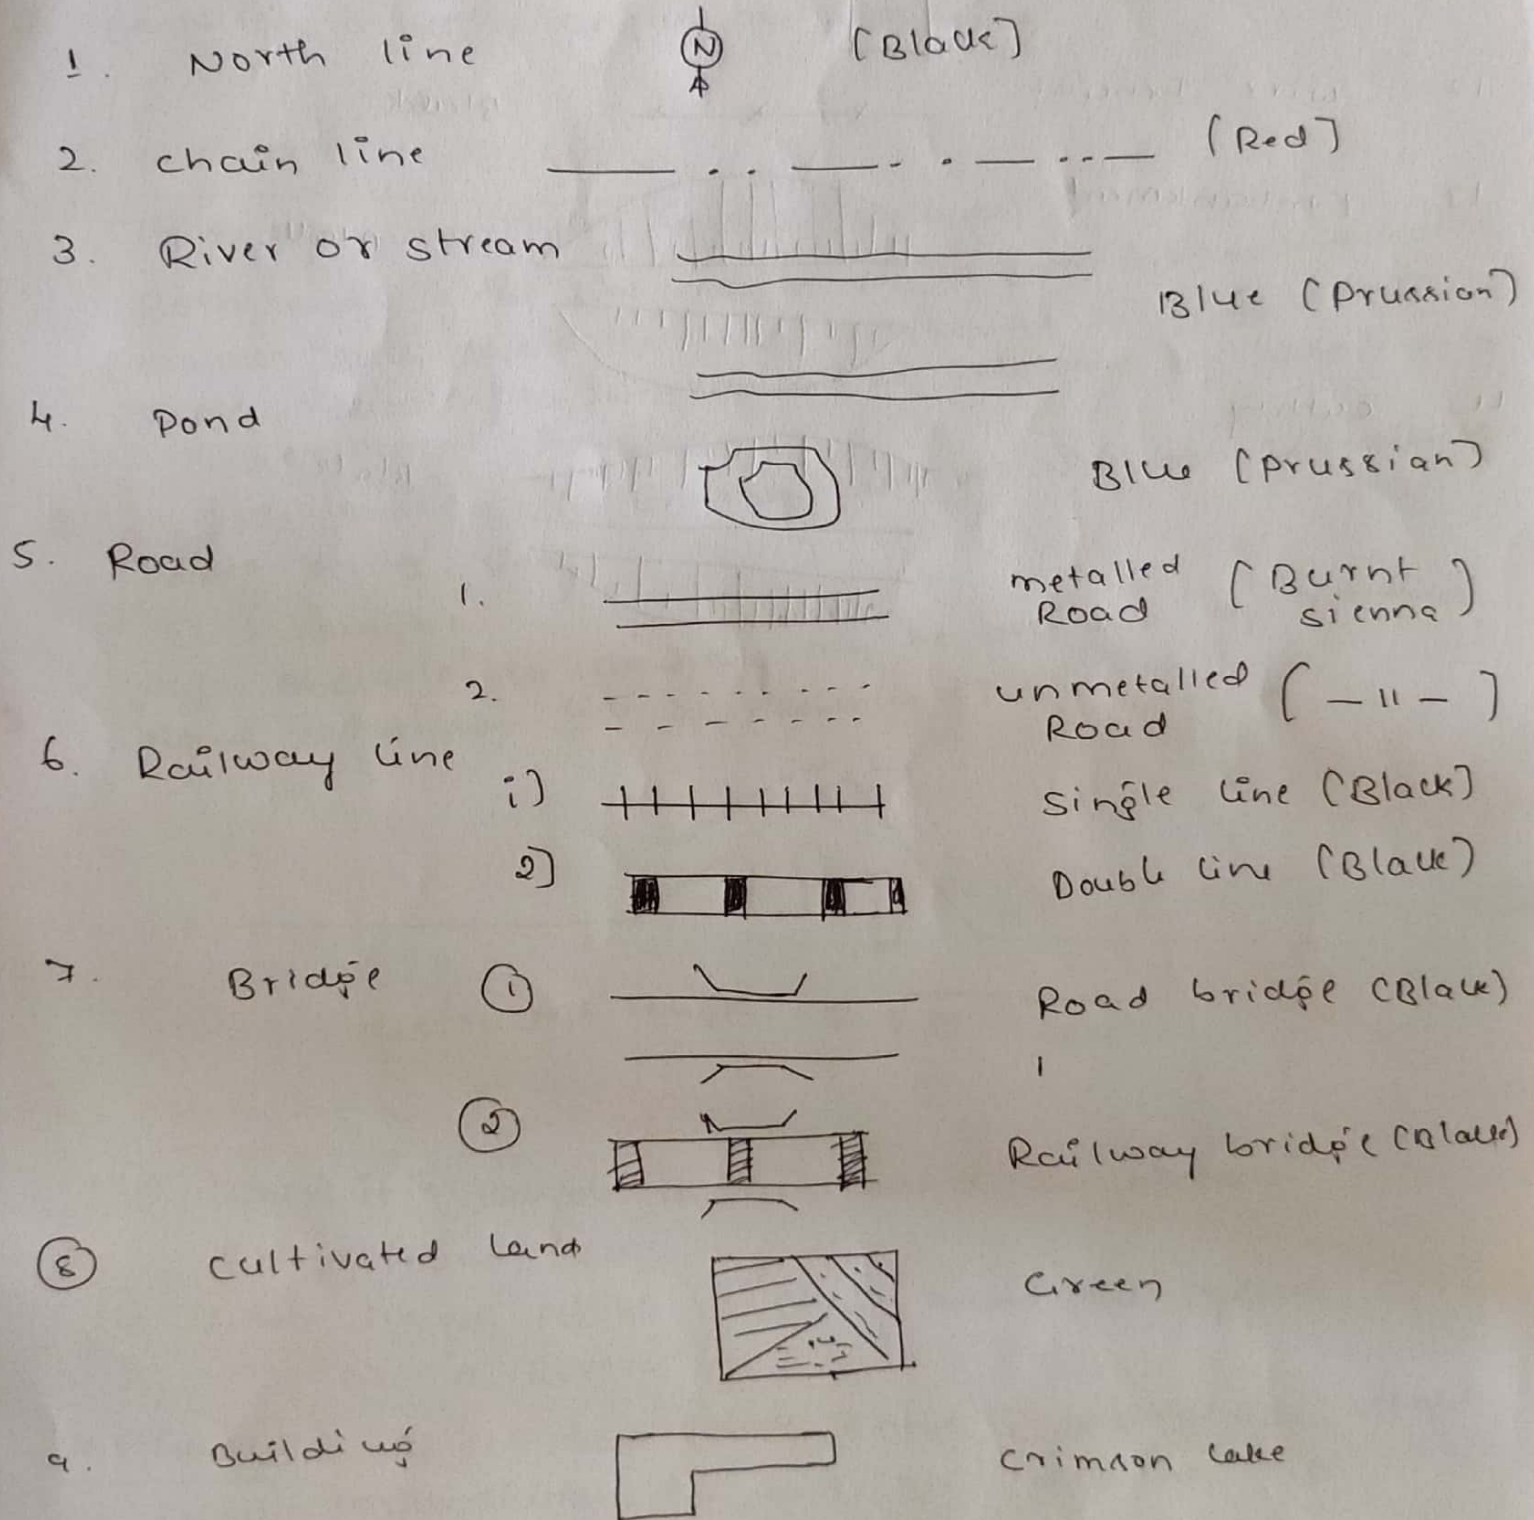 1. North line N (Black)
2. chain line (Red)
3. River or stream
Blue (Prussian)
4. Pond
Blue (Prussian)
5. Road
1. metalled Road (Burnt sienna)
2. unmetalled Road ( -11- )
6. Railway line
i) Single line (Black)
2) Double line (Black)
7. Bridge
1 Road bridge (Black)
2 Railway bridge (Black)
8 Cultivated Land Green
9. Building Crimson Lake